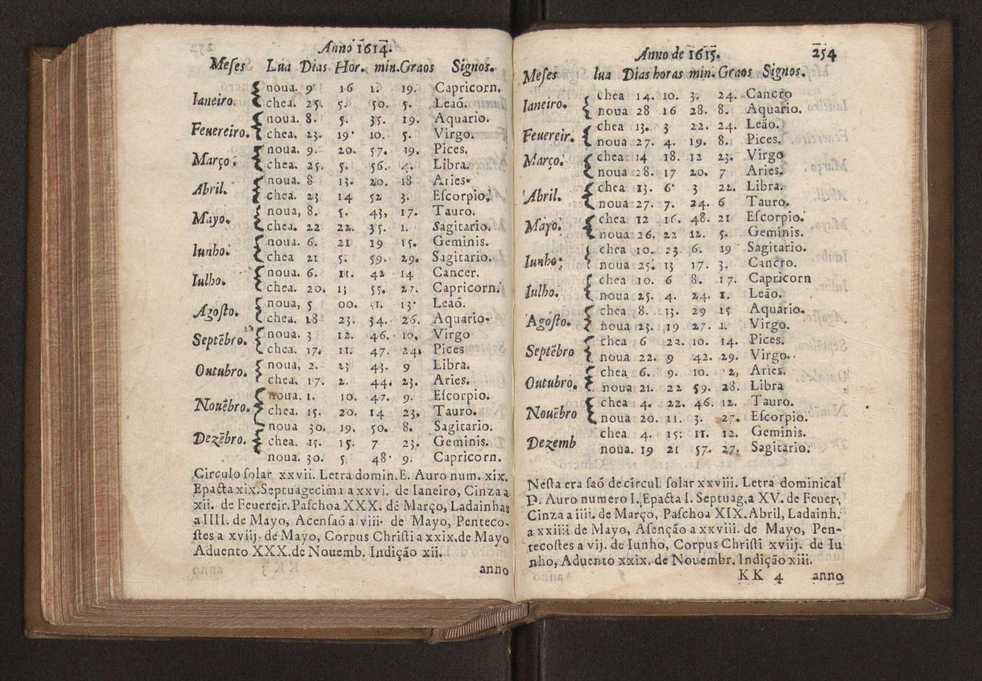 Anno 1614.
Meses Lũa Dias Hor. min. Graos Signos.
Ianeiro. noua. 9 16 1. 19. Capricorn.
chea. 25. 5. 50. 5. Leaõ.
Feuereiro. noua. 8. 5. 35. 19. Aquario.
chea, 23. 19 10. 5. Virgo.
Março. noua. 9. 20. 57. 19. Pices.
chea. 25. 5. 56. 4. Libra.
Abril. noua. 8 13. 20. 18 Aries.
chea. 23 14 52 3. Escorpio.
Mayo. noua, 8. 5. 43, 17. Tauro.
chea. 22 22. 35. 1. Sagitario.
Iunho. noua. 6. 21 19 15. Geminis.
chea 21 5. 59. 29. Sagitario.
Iulho. noua. 6. 11. 42 14 Cancer.
chea. 20. 13 55. 27. Capricorn.
Agosto. noua, 5 00. 1. 13 Leaõ.
chea. 18 23. 54. 26. Aquario.
Septẽbro. noua. 3 12. 46. 10. Virgo
chea. 17. 11. 47. 24. Pices
Outubro. noua, 2. 23 43. 9 Libra.
chea, 17. 2. 44. 23. Aries.
Nouẽbro. noua. 1. 10. 47. 9. Escorpio.
chea. 15. 20. 14 23. Tauro.
noua 30. 19. 50. 8. Sagitario.
Dezẽbro. chea. 15. 15. 7 23. Geminis.
noua. 30. 5. 48. 9. Capricorn.
Circulo solar xxvii. Letra domin. E. Auro num. xix.
Epacta xix. Septuagecima a xxvi. de Ianeiro, Cinza a
xii. de Feuereir. Paschoa XXX. de Março, Ladainhas
a IIII. de Mayo, Acensaõ a viii. de Mayo, Penteco-
stes a xviij. de Mayo, Corpus Christi a xxix. de Mayo
Aduento XXX. de Nouemb. Indição xii.
anno
Anno de 1615. 254
Meses lua Dias horas min. Graos Signos.
Ianeiro. chea 14. 10. 3. 24. Cancro
noua 28 16 28. 8. Aquario.
Feuereir. chea 13. 3 22. 24. Leão.
noua 27. 4. 19. 8. Pices.
Março. chea 14 18. 12 23. Virgo
noua 28. 17 20. 7 Aries.
Abril. chea 13. 6 3 22. Libra.
noua 27. 7. 24. 6 Tauro.
Mayo. chea 12 16. 48. 21 Escorpio.
noua 26. 22 12. 5. Geminis.
Iunho. chea 10. 23. 6. 19 Sagitario.
noua 25. 13 17. 3. Cancro.
Iulho. chea 10. 6 8. 17. Capricorn
noua 25. 4. 24. 1. Leão.
Agosto. chea 8. 13. 29 15 Aquario.
noua 23. 19 27. 1. Virgo.
Septẽbro chea 6 22. 10. 14. Pices.
noua 22. 9 42. 29. Virgo.
Outubro. chea 6. 9. 10. 2, Aries.
noua 21. 22 59. 28. Libra
Nouẽbro chea 4. 22. 46. 12. Tauro.
noua 20. 11. 3. 27. Escorpio.
Dezemb chea 4. 15: 11. 12. Geminis.
noua. 19 21 57. 27. Sagitario.
Nesta era saõ de circul. solar xxviii. Letra dominical
D. Auro numero I. Epacta I. Septuag. a XV. de Feuer.
Cinza a iiii. de Março, Paschoa XIX. Abril, Ladainh.
a xxiiii de Mayo, Asenção a xxviii. de Mayo, Pen-
tecostes a vij. de Iunho, Corpus Christi xviij. de Iu
nho, Aduento xxix. de Nouembr. Indição xiii.
KK 4 anno